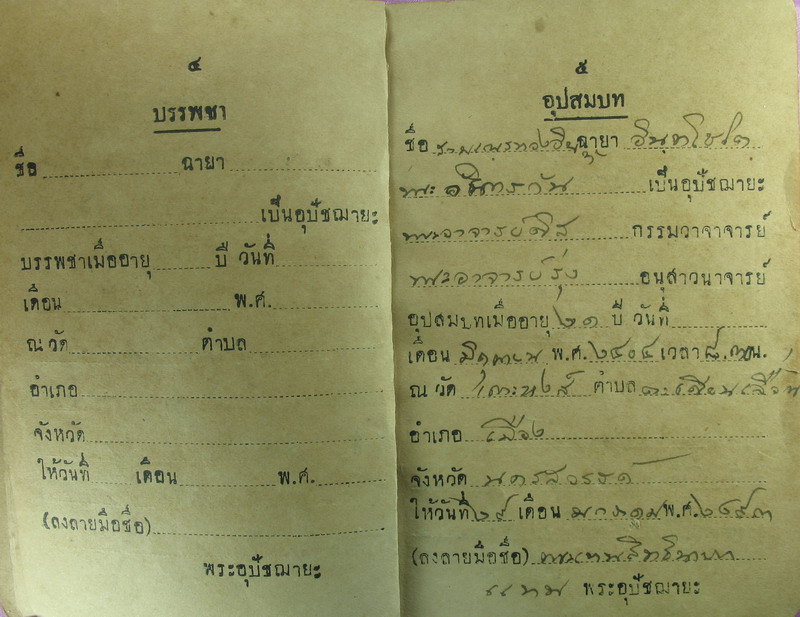 ๔
บรรพชา
ชื่อ ฉายา
เป็นอุปัชฌายะ
บรรพชาเมื่ออายุ ปี วันที่
เดือน พ.ศ.
ณ วัด ตำบล
อำเภอ
จังหวัด
ให้วันที่ เดือน พ.ศ.
(ลงลายมือชื่อ)
พระอุปัชฌายะ
๕
อุปสมบท
ชื่อ ฉายา อินฺทโชโต
พระ เป็นอุปัชฌายะ
พระอาจารย์ กรรมวาจาจารย์
พระอาจารย์รุ่ง อนุสาวนาจารย์
อุปสมบทเมื่ออายุ ๒๑ ปี วันที่
เดือน มิถุนายน พ.ศ. ๒๔๐๔ เวลา น.
ณ วัด ตำบล ตะเคียนเลื่อน
อำเภอ เมือง
จังหวัด นครสวรรค์
ให้วันที่ ๒๙ เดือน พ.ศ. ๒๔๙๓
(ลงลายมือชื่อ)
แทน พระอุปัชฌายะ